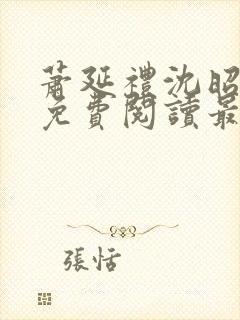 蕭延禮沈昭
免費閱讀最
張恬